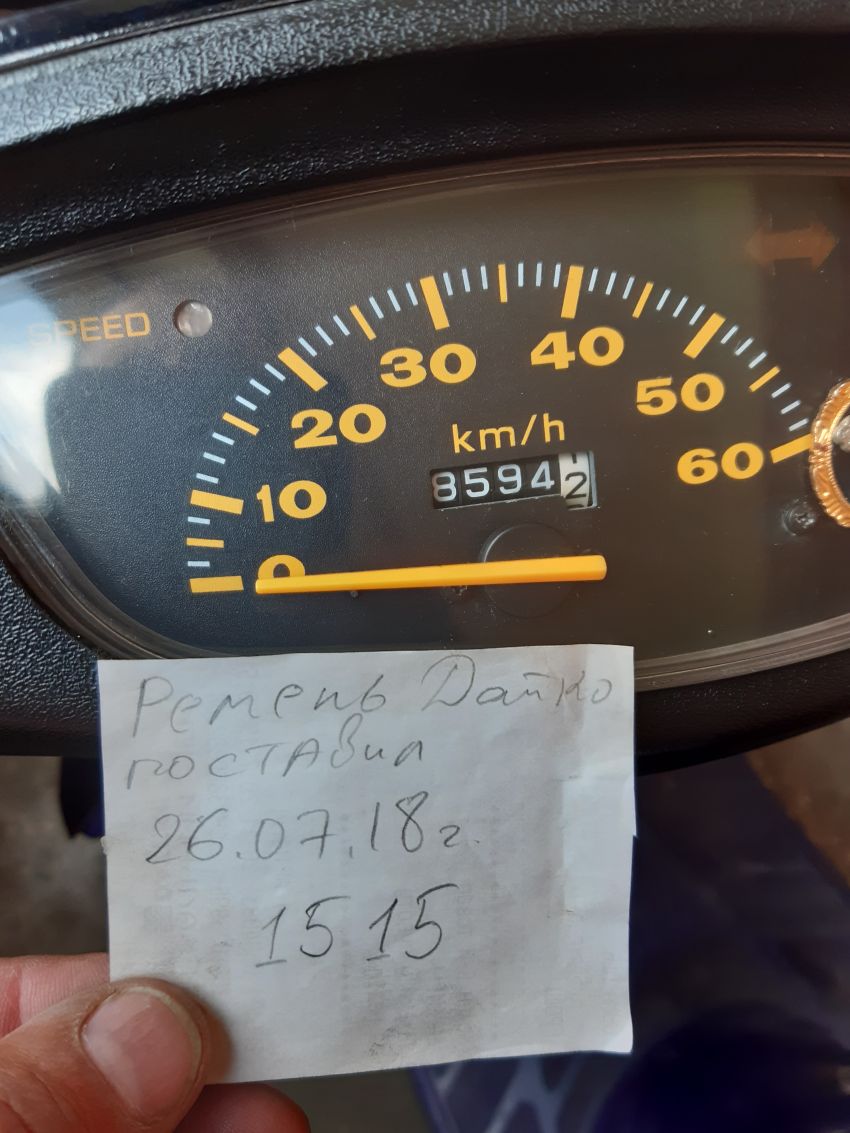 SPEED
0
10
20
30
40
50
60
km/h
85942
Ремень Дайко
поставил
26.07.18г.
1515